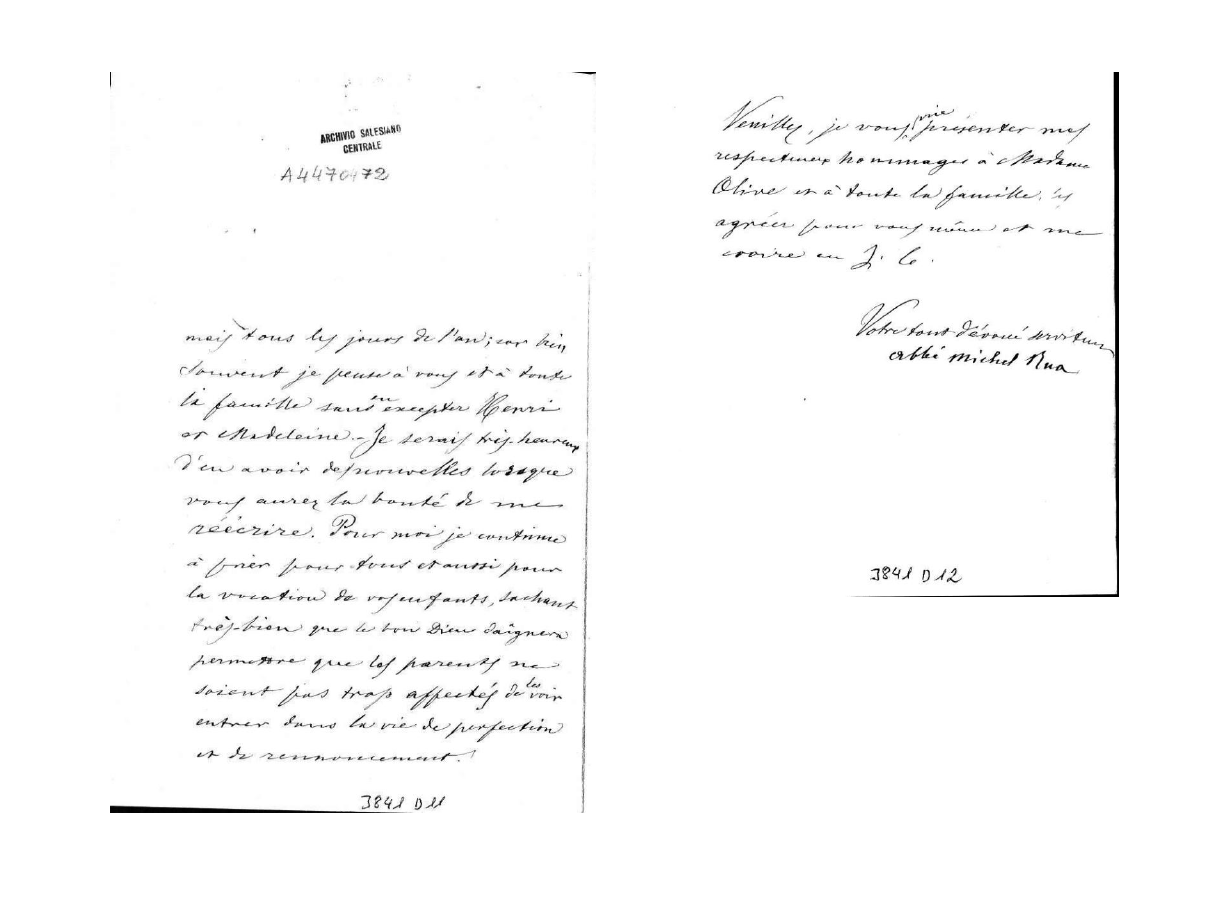 ARCHIVIO SALESIANO
CENTRALE
A4470472
mais tous les jours de l'an; car bien
souvent je pense à vous et à toute
la famille sans en excepter Henri
et Madeleine. - Je serais très-heureux
d'en avoir des nouvelles lorsque
vous aurez la bonté de me
réécrire. Pour moi je continue
à prier pour tous et aussi pour
la vocation de vos enfants, sachant
très-bien que le bon Dieu daignera
permettre que les parents ne
soient pas trop affectés de les voir
entrer dans la vie de perfection
et de rennoncement.
3841 D 11
Veuillez, je vous prie présenter mes
respectueux hommages à Madame
Olive et à toute la famille, les
agréer pour vous même et me
croire en J. C.
Votre tout dévoué serviteur
abbé Michel Rua
3841 D 12